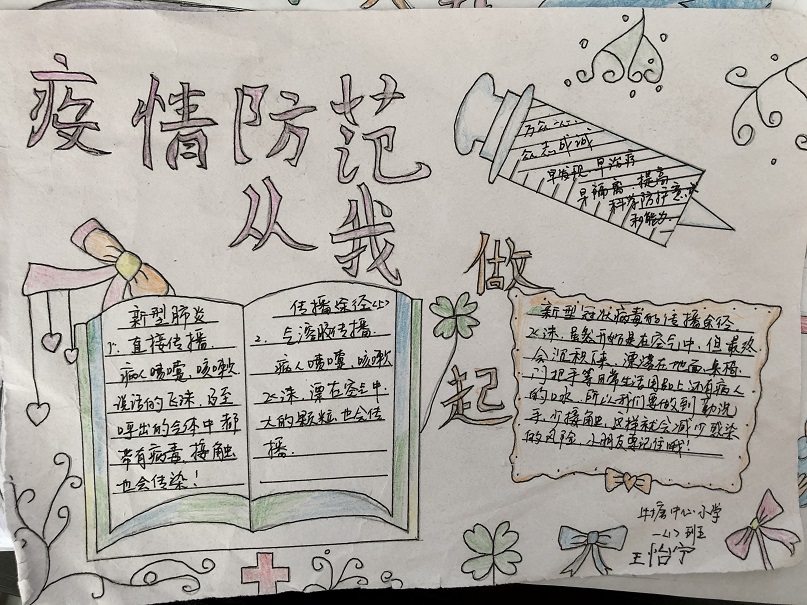 疫情防范
从我
做
起
万众一心
众志成城
早发现 早治疗
早隔离 提高
科学防护意识
和能力
新型肺炎
1. 直接传播.
病人喷嚏,咳嗽
说话的飞沫,及至
呼出的气体中都
带有病毒,接触
也会传染!
传播途径
2. 气溶胶传播.
病人喷嚏,咳嗽
飞沫,漂在空气中
大的颗粒也会传
播.
新型冠状病毒的传播途径
飞沫,虽然开始是在空气中,但最终
会沉积下来,漂落在地面、桌椅
门把手等日常生活用品上还有病人
的口水,所以我们要做到勤洗
手,少接触,这样就会减少感染
的风险,小朋友要记住哦!
牛塘中心小学
一(4)班
王怡宁